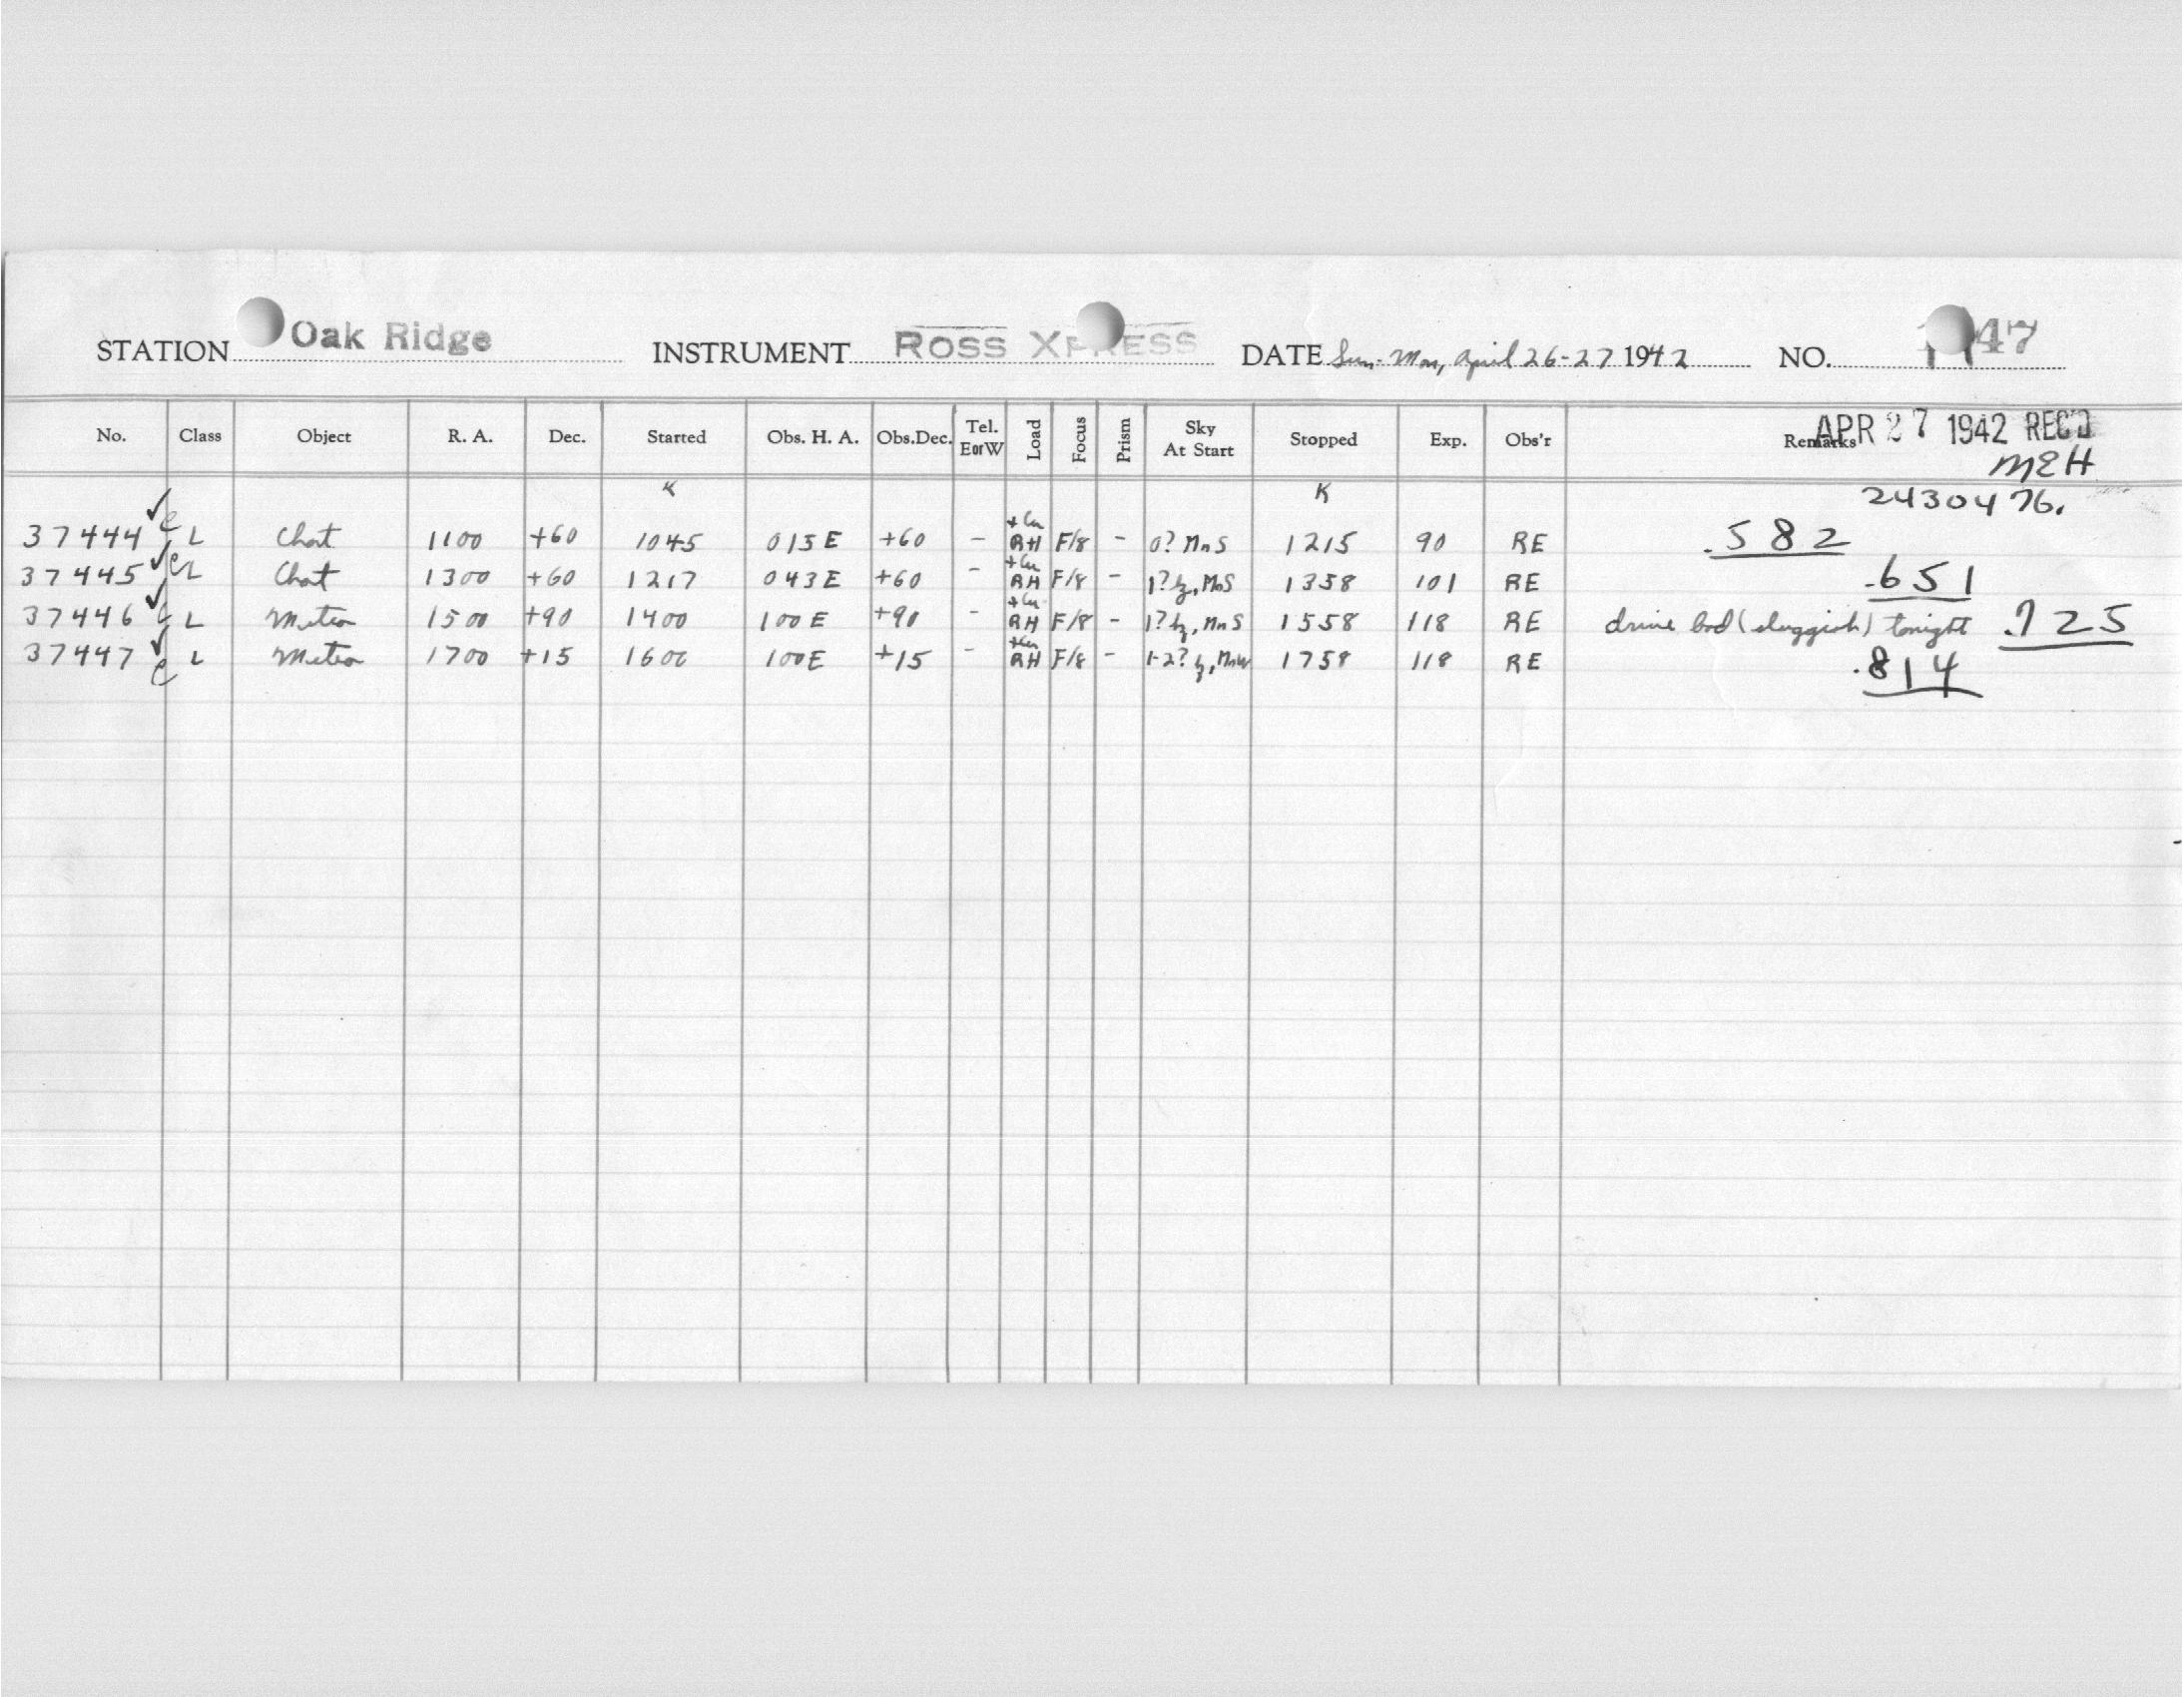 STATION Oak Ridge INSTRUMENT ROSS XPRESS DATE Sun-Mon, April 26-27 1942 NO. 47
No. Class Object R. A. Dec. Started Obs. H. A. Obs.Dec. Tel. EorW Load Focus Prism Sky At Start Stopped Exp. Obs'r Remarks APR 27 1942 REC'D
MEH
K K 2430476.
37444 ✓ C L Chart 1100 +60 1045 015E +60 - RH F/8 - 0? MnS 1215 90 RE .582
37445 ✓ C L Chart 1300 +60 1217 043E +60 - RH F/8 - 1? hz, MnS 1358 101 RE .651
37446 ✓ C L Meteor 1500 +90 1400 100E +90 - RH F/8 - 1? hz, MnS 1558 118 RE drive bad (sluggish) tonight .725
37447 ✓ C L Meteor 1700 +15 1600 100E +15 - RH F/8 - 1-2? hz, MnW 1758 118 RE .814